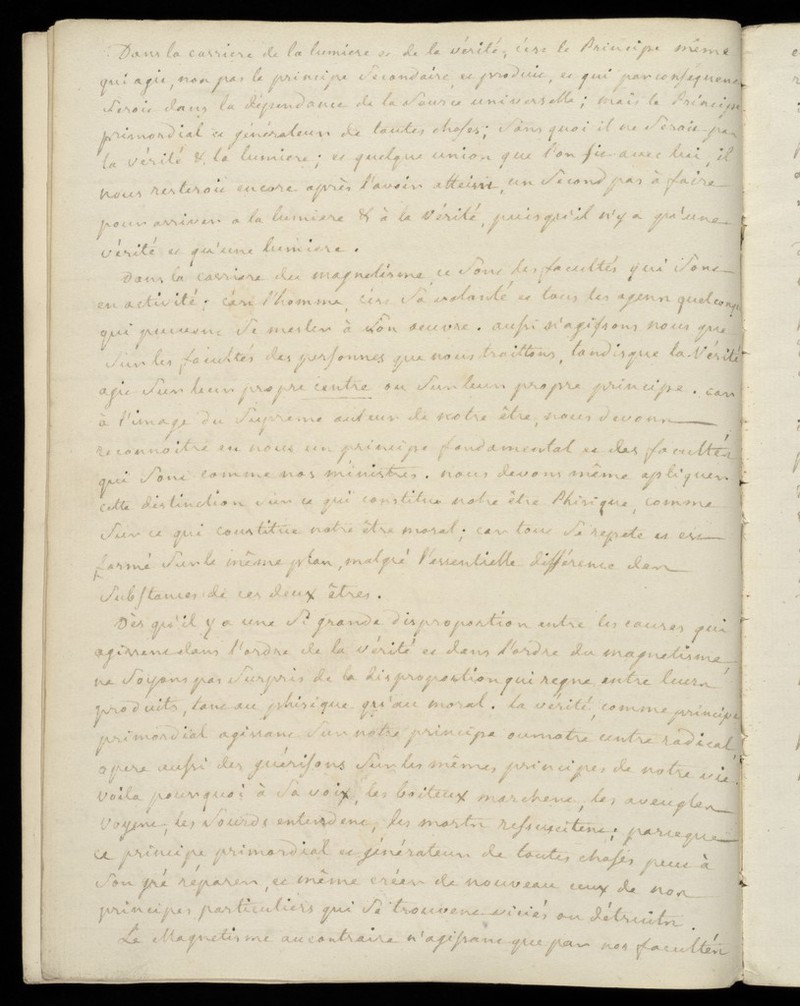 Dans la carriere de la lumiere et de la vérité, c'est le Principe même
qui agit, non pas le principe secondaire et produit, et qui par conséquent
seroit dans la dépendance de la source universelle; mais le Principe
primordial et générateur de toutes choses; sans quoi il ne seroit pas
la vérité & la lumiere; et quelque union que l'on fit avec lui, il
nous resteroit encore après l'avoir atteint, un second pas à faire
pour arriver a la lumiere & à la vérité, puisqu'il n'y a qu'une
vérité et qu'une lumiere.
Dans la carriere du magnetisme ce sont les facultés qui sont
en activité; c'est l'homme, c'est sa volonté et tous les agens quelconques
qui peuvent se mesler à son oeuvre. aussi n'agissons nous que
sur les facultés des personnes que nous traittons, tandisque la Vérité
agit sur leur propre centre ou sur leur propre principe. car
à l'image du Supreme auteur de notre être, nous devons
reconnoitre en nous un principe fondamental et des facultés
qui sont comme nos ministres. nous devons même apliquer
cette distinction sur ce qui constitue notre être Phisique, comme
sur ce qui constitue notre être moral; car tout se repete et est
formé sur le même plan, malgré l'essentielle différence des
substances de ces deux êtres.
Dès qu'il y a une si grande disproportion entre les causes qui
agissent dans l'ordre de la vérité et dans l'ordre du magnetisme,
ne soyons pas surpris de la disproportion qui regne entre leurs
produits, tant au phisique qu'au moral. la vérité, comme principe
primordial agissant sur notre principe ou notre centre radical,
opere aussi des guérisons sur les mêmes principes de notre vie.
Voila pourquoi à sa voix, les boiteux marchent, les aveugles
voyent, les sourds entendent, les morts ressuscitent; parceque
ce principe primordial et générateur de toutes choses peut à
son gré réparer, et même créer de nouveau ceux de nos
principes particuliers qui se trouvent viciés ou détruits.
Le Magnetisme au contraire n'agissant que par nos facultés